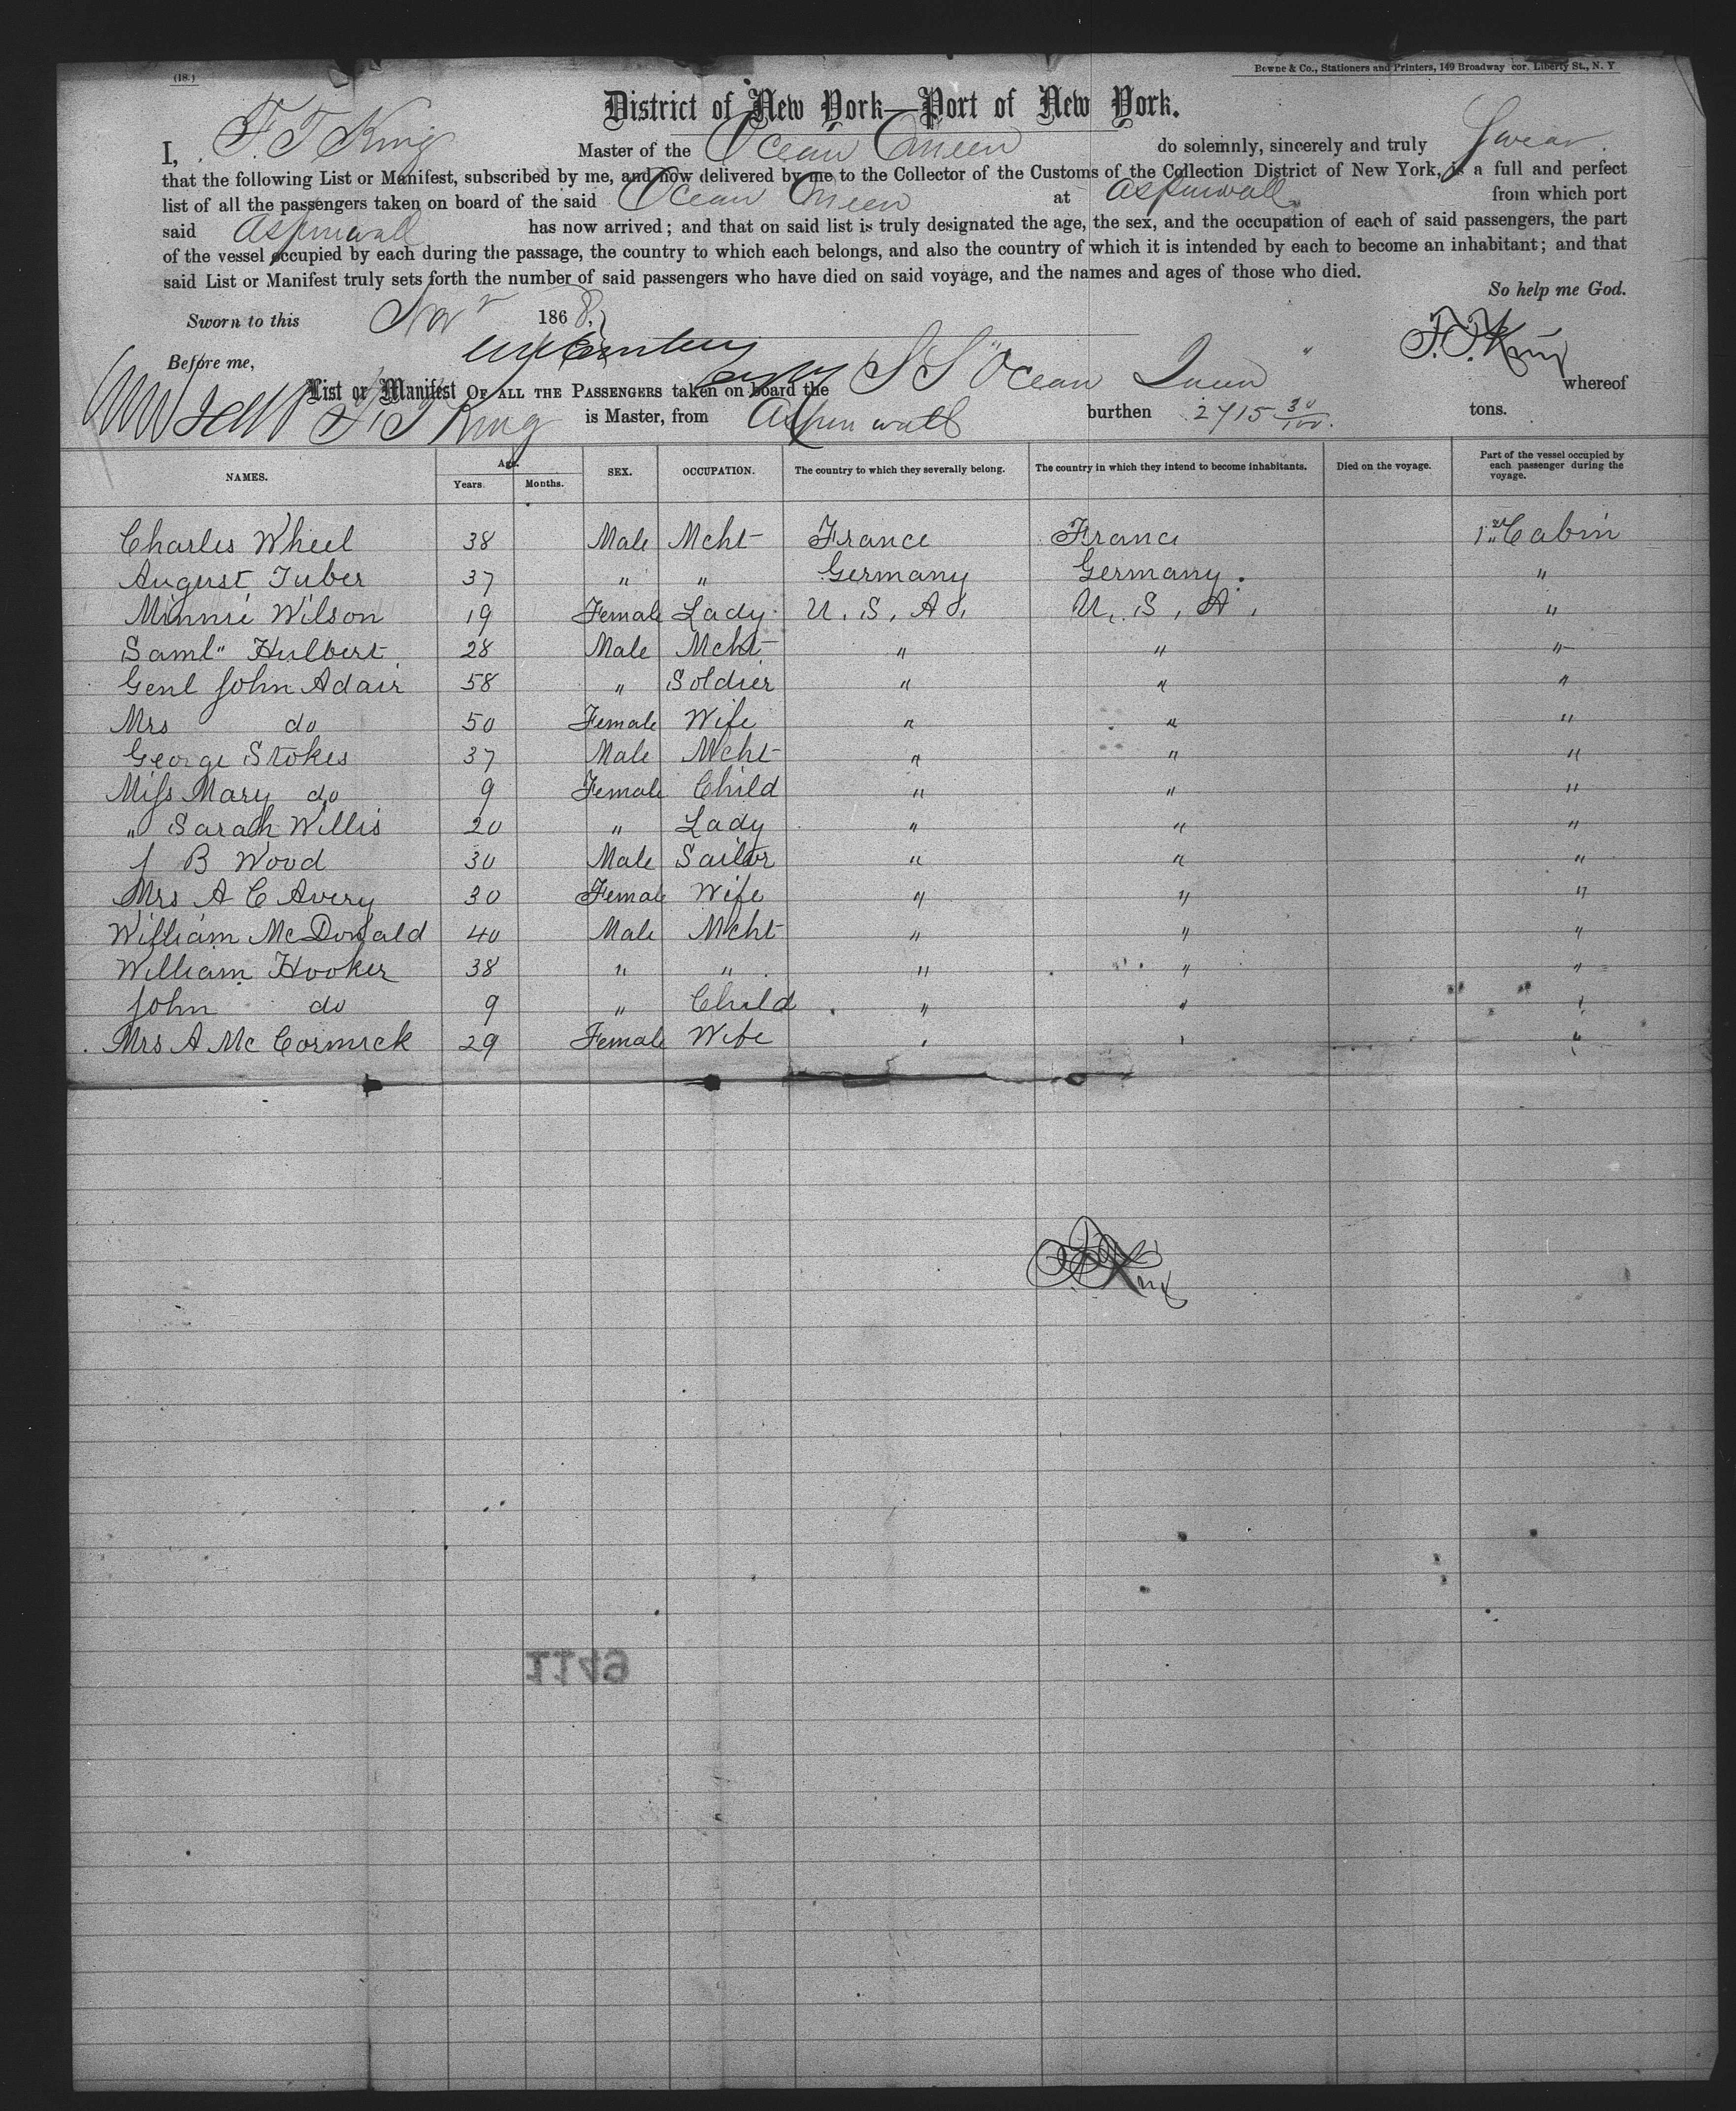 (18.)
Bowne & Co., Stationers and Printers, 149 Broadway cor. Liberty St., N. Y
District of New York—Port of New York.
I, F. T King Master of the Ocean Queen do solemnly, sincerely and truly Swear
that the following List or Manifest, subscribed by me, and now delivered by me to the Collector of the Customs of the Collection District of New York, is a full and perfect
list of all the passengers taken on board of the said Ocean Queen at Aspinwall from which port
said Aspinwall has now arrived; and that on said list is truly designated the age, the sex, and the occupation of each of said passengers, the part
of the vessel occupied by each during the passage, the country to which each belongs, and also the country of which it is intended by each to become an inhabitant; and that
said List or Manifest truly sets forth the number of said passengers who have died on said voyage, and the names and ages of those who died.
So help me God.
Sworn to this Novr 1868, F. T. King
Before me,
List or Manifest OF ALL THE PASSENGERS taken on board the S S "Ocean Queen" whereof
F. T King is Master, from Aspinwall burthen 2715 30/100. tons.
NAMES. Age. Years. Months. SEX. OCCUPATION. The country to which they severally belong. The country in which they intend to become inhabitants. Died on the voyage. Part of the vessel occupied by each passenger during the voyage.
Charles Wheel 38 Male Mcht France France 1st Cabin
August Tuber 37 " " Germany Germany. "
Minnie Wilson 19 Female Lady U. S, A. U. S, A, "
Saml" Hulbert 28 Male Mcht " " "
Genl John Adair 58 " Soldier " " "
Mrs do 50 Female Wife " " "
George Stokes 37 Male Mcht " " "
Miss Mary do 9 Female Child " " "
" Sarah Willis 20 " Lady " " "
J B Wood 30 Male Sailor " " "
Mrs A C Avery 30 Female Wife " " "
William McDonald 40 Male Mcht " " "
William Hooker 38 " " " " "
John do 9 " Child " " "
Mrs A Mc Cormick 29 Female Wife " " "
F. T. King
1149